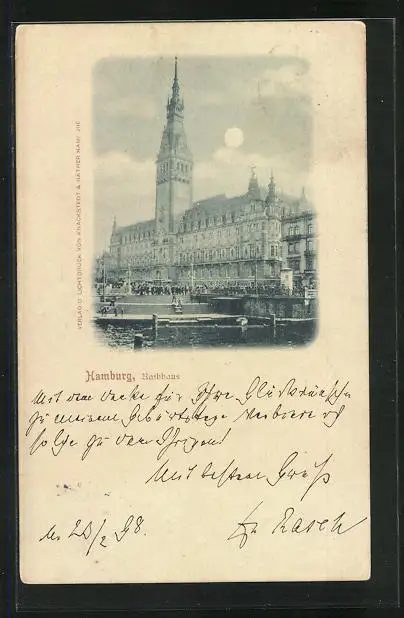 Hamburg, Rathhaus
VERLAG U. LICHTDRUCK VON KNACKSTEDT & NÄTHER HAMBURG
Mit dem Danke für Ihre Glückwünsche
zu meinem Geburtstage verbinde ich
solche zu dem Ihrigen!
Mit bestem Gruß
Rasch
/2 98.